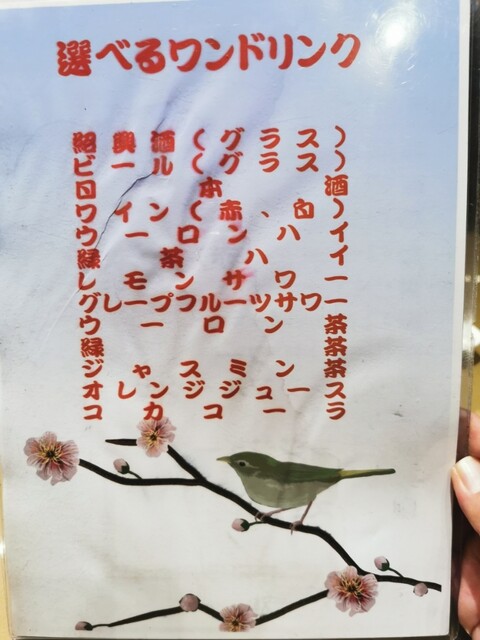 選べるワンドリンク
紹興酒(グラス)
ビール(グラス)
日本酒
ワイン(赤、白)
ウーロンハイ
緑茶ハイ
レモンサワー
グレープフルーツサワー
ウーロン茶
緑茶
ジャスミン茶
オレンジジュース
コカコーラ